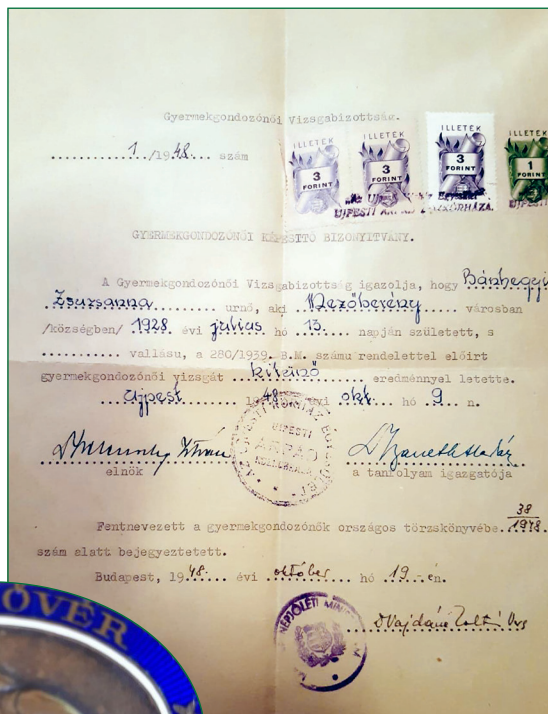 Gyermekgondozónői Vizsgabizottság.
1/1948. szám
ILLETÉK 3 FORINT
ILLETÉK 3 FORINT
ILLETÉK 3 FORINT
ILLETÉK 1 FORINT
UJPESTI ÁRPÁD KÖZKÓRHÁZA
GYERMEKGONDOZÓNŐI KÉPESITŐ BIZONYITVÁNY.
A Gyermekgondozónői Vizsgabizottság igazolja, hogy Bánhegyi
Zsuzsanna urnő, aki Mezőberény városban
/községben/ 1928. évi julius hó 13. napján született, s
vallásu, a 280/1939. B.M. számu rendelettel előirt
gyermekgondozónői vizsgát kitünő eredménnyel letette.
Ujpest 1948 évi okt. hó 9 n.
UJPESTI ÁRPÁD KÖZKÓRHÁZA
elnök a tanfolyam igazgatója
38
Fentnevezett a gyermekgondozónők országos törzskönyvébe 1948
szám alatt bejegyeztetett.
Budapest, 1948. évi október hó 19-én.
NÉPJÓLÉTI
ŐVÉR